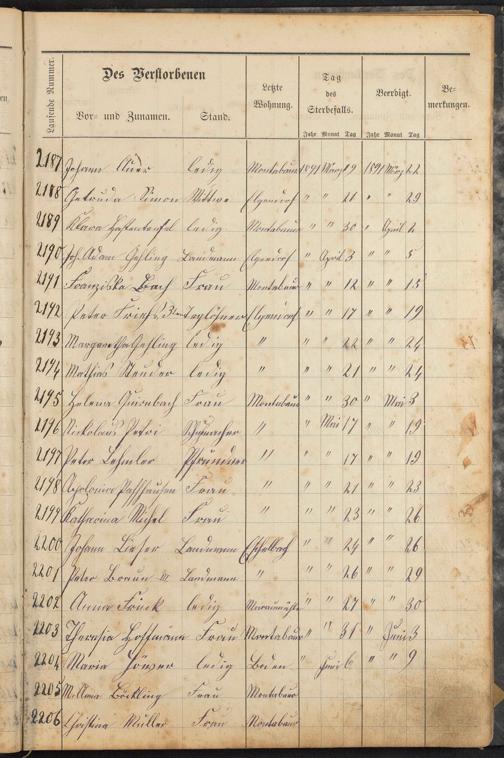 Laufende Nummer.
Des Verstorbenen
Vor- und Zunamen. Stand.
Letzte Wohnung.
Tag des Sterbefalls.
Beerdigt.
Bemerkungen.
Jahr Monat Tag Jahr Monat Tag
2187 Johann Auer ledig Montabaur 1891 März 19 1891 März 22
2188 Gertruda Simon Wittwe Elgendorf " " 21 " " 29
2189 Klara ledig Montabaur " " 30 " April 2
2190 Joh. Adam Gehling Landmann Elgendorf " April 3 " " 5
2191 Franziska Bach Frau Montabaur " " 12 " " 15
2192 Peter Taglöhner Elgendorf " " 17 " " 19
2193 Margaretha Gehling ledig " " " 22 " " 24
2194 Mathias Steuder ledig " " " 21 " " 24
2195 Helena Frau Montabaur " " 30 " Mai 3
2196 Nickolaus Petri Schumacher " " Mai 17 " " 19
2197 Peter Lehmler Pfründner " " " 17 " " 19
2198 Apolonia Frau " " " 21 " " 23
2199 Katharina Michel Frau " " " 23 " " 26
2200 Johann Lieser Landmann Eschelbach " " 24 " " 26
2201 Peter Braun Landmann " " " 26 " " 29
2202 Anna Frink ledig " " 27 " " 30
2203 Therasia Hoffmann Frau Montabaur " " 31 " Juni 3
2204 Maria Höwer ledig Boden " Juni 6 " " 9
2205 Böckling Frau Montabaur
2206 Christina Müller Frau Montabaur